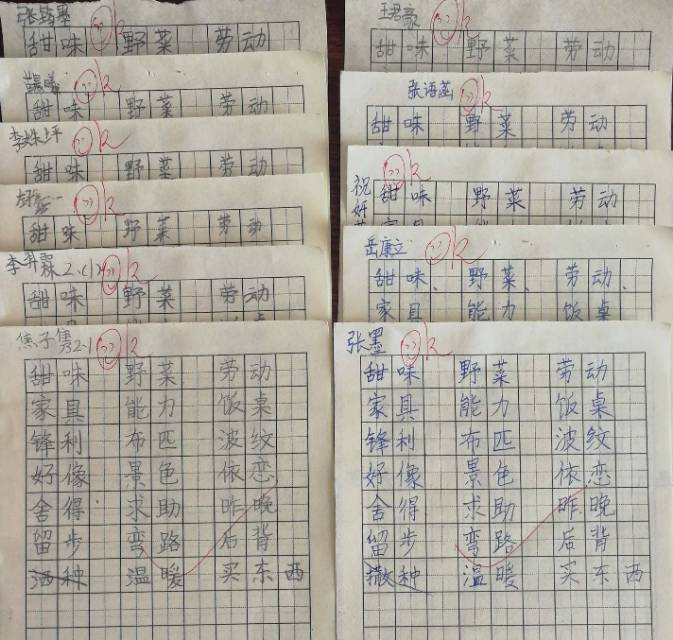 甜味 野菜 劳动
甜味 野菜 劳动
李姝坪
甜味 野菜 劳动
甜味 野菜 劳动
李昇霖 2.(1)
甜味 野菜 劳动
焦子隽 2-1
甜味 野菜 劳动
家具 能力 饭桌
锋利 布匹 波纹
好像 景色 依恋
舍得 求助 昨晚
留步 弯路 后背
洒种 温暖 买东西
王君豪
甜味 野菜 劳动
张语菡
甜味 野菜 劳动
祝好
甜味 野菜 劳动
岳康立
甜味、 野菜、 劳动、
家具 能力 饭桌
张墨
甜味 野菜 劳动
家具 能力 饭桌
锋利 布匹 波纹
好像 景色 依恋
舍得 求助 昨晚
留步 弯路 后背
撒种 温暖 买东西